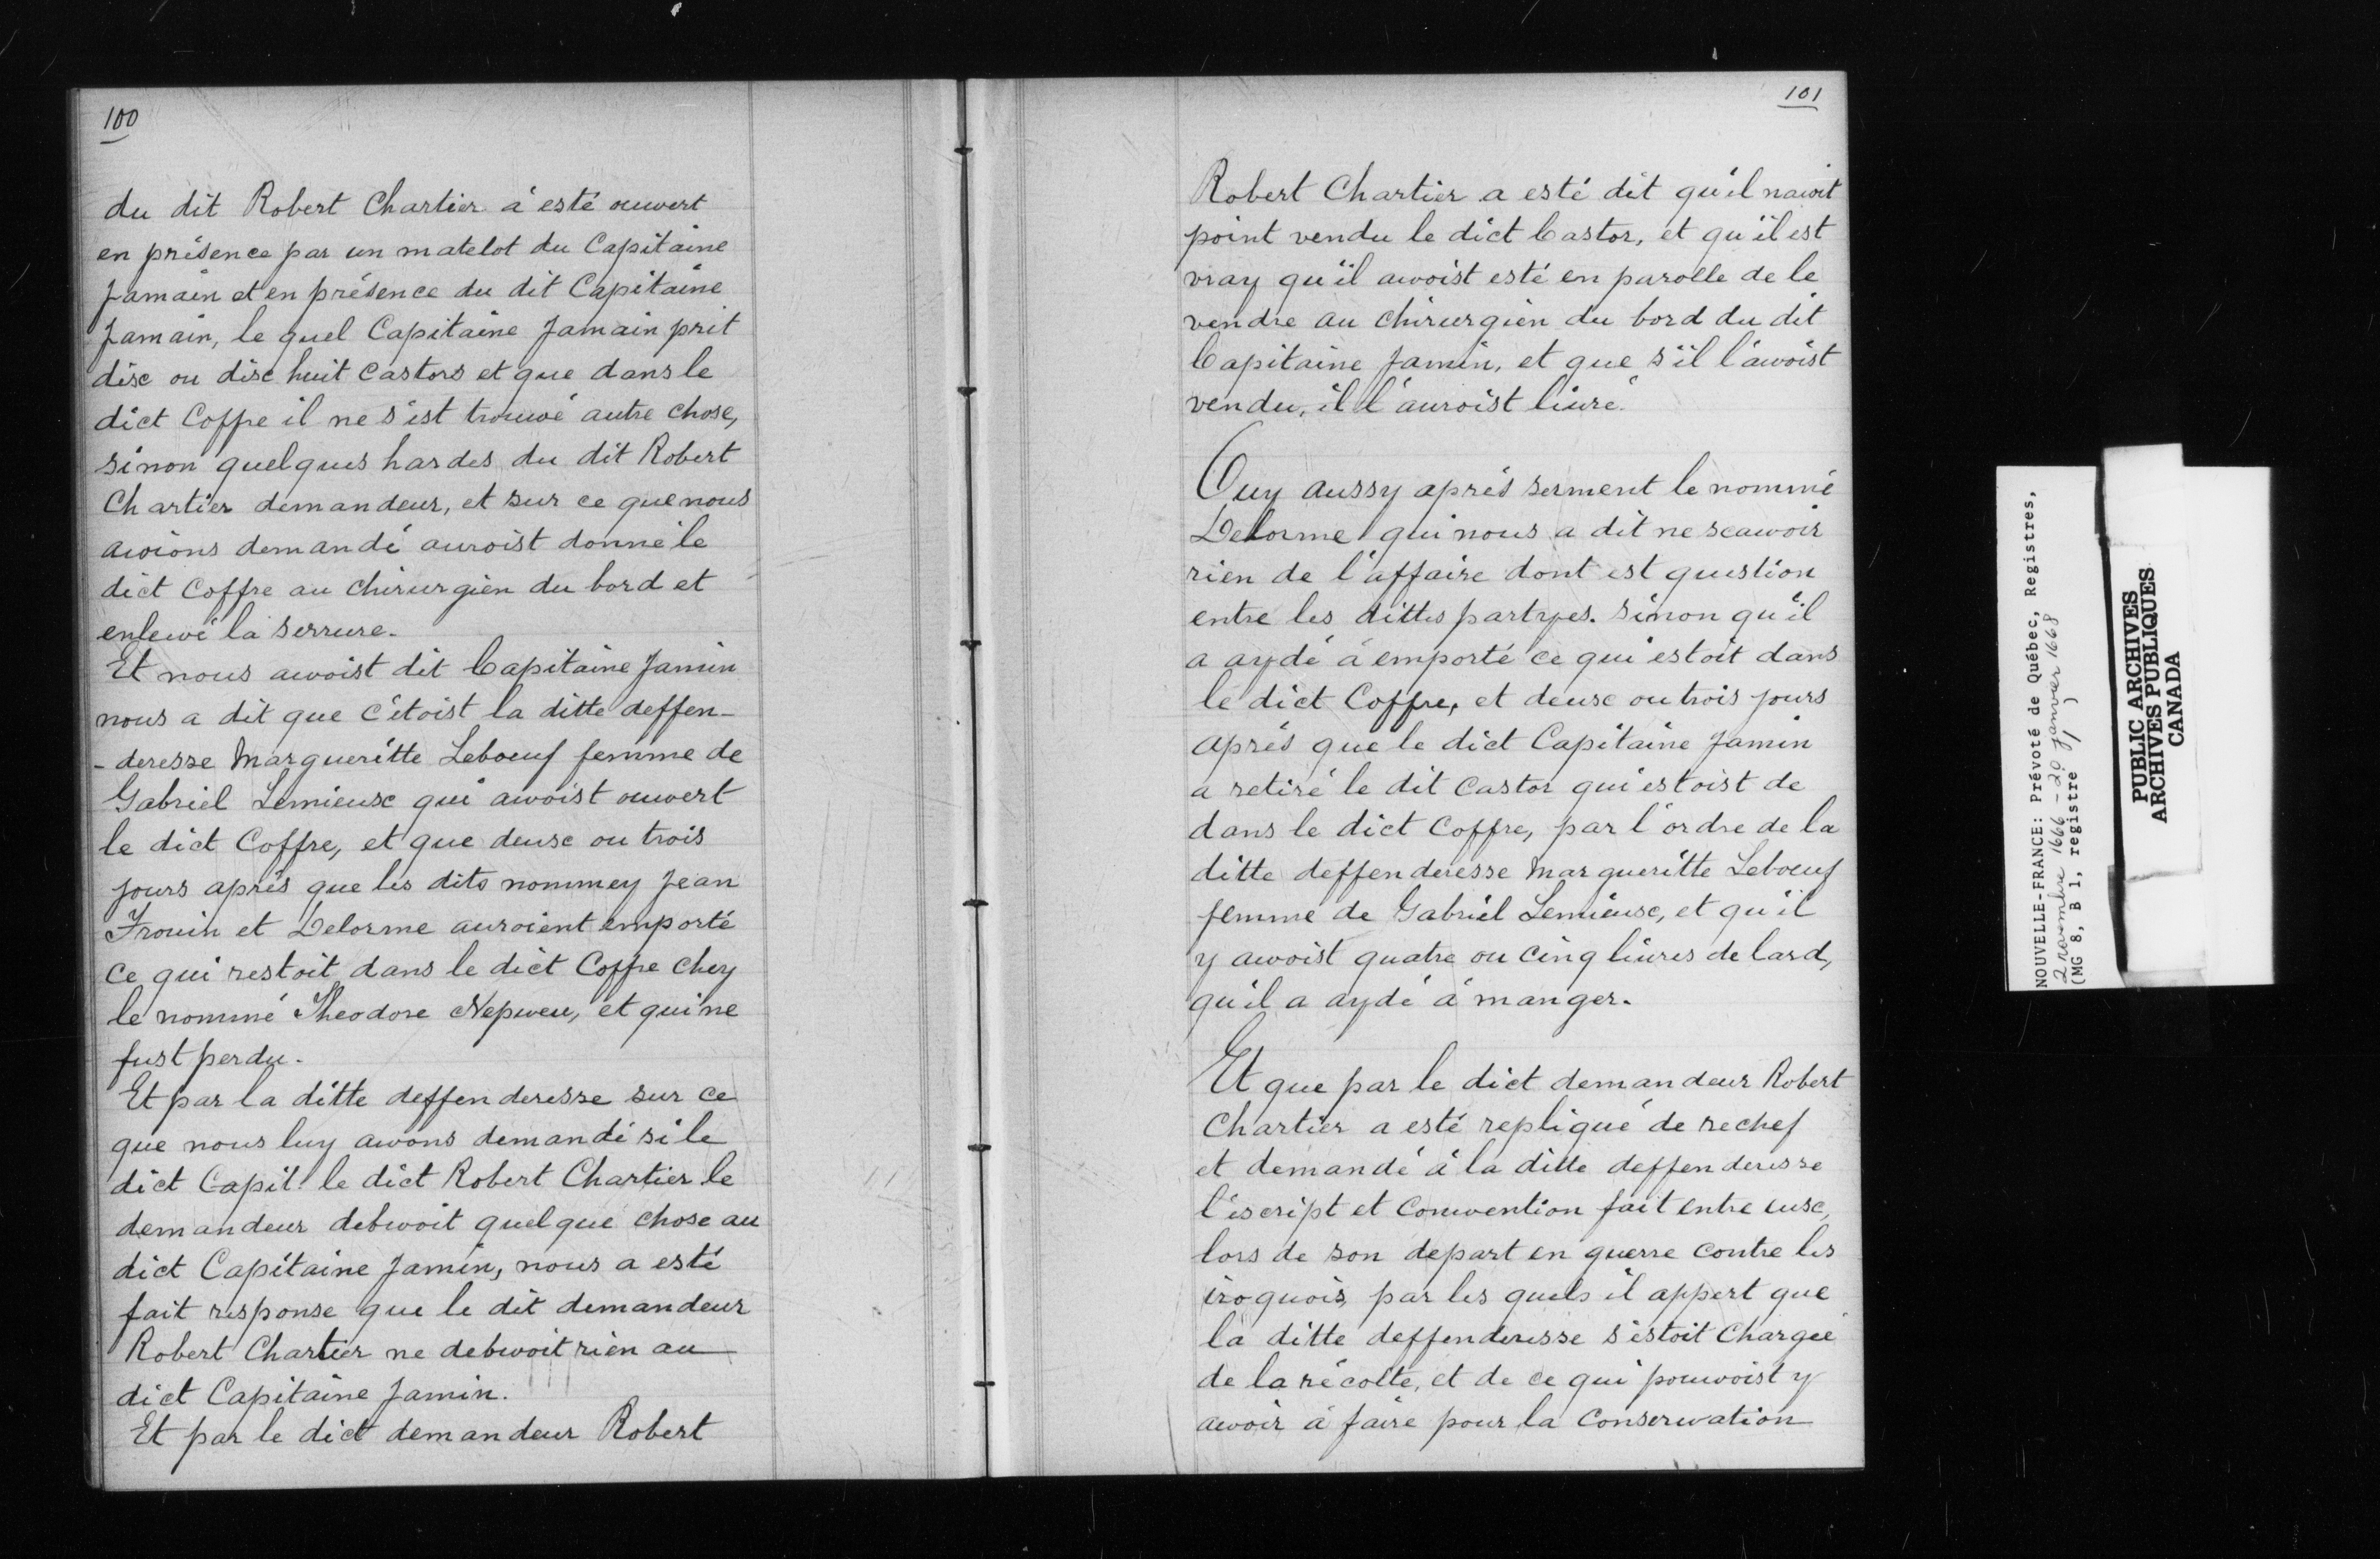 100
du dit Robert Chartier a esté ouvert
en présence par un matelot du Capitaine
Jamain et en présence du dit Capitaine
Jamain, le quel Capitaine Jamain prit
dix ou dix huit Castors et que dans le
dict Coffre il ne s'est trouvé autre chose,
sinon quelques hardes du dit Robert
Chartier demandeur, et sur ce que nous
avions demandé auroist donné le
dict Coffre au chirurgien du bord et
enlevé la serrure.
Et nous avoist dit Capitaine Jamin
nous a dit que c'étoist la ditte deffen-
-deresse Margueritte Leboeuf femme de
Gabriel Lemieux qui avoist ouvert
le dict Coffre, et que deux ou trois
jours après que les dits nommey Jean
Frouin et Delorme auroient emporté
ce qui restoit dans le dict Coffre chey
le nommé Theodore Nepveu, et qui ne
fust perdu.
Et par la ditte deffenderesse sur ce
que nous luy avons demandé si le
dict Capit. le dict Robert Chartier le
demandeur debvoit quelque chose au
dict Capitaine Jamin, nous a esté
fait response que le dit demandeur
Robert Chartier ne debvoit rien au
dict Capitaine Jamin.
Et par le dict demandeur Robert
101
Robert Chartier a esté dit qu'il navoit
point vendu le dict Castor, et qu'il est
vray qu'il avoist esté en parolle de le
vendre au chirurgien du bord du dit
Capitaine Jamin, et que s'il l'avoist
vendu, il l'auroist livré.
Ouy aussy après serment le nommé
Delorme qui nous a dit ne scavoir
rien de l'affaire dont est question
entre les dittes partyes. sinon qu'il
a aydé à emporté ce qui estoit dans
le dict Coffre, et deux ou trois jours
après que le dict Capitaine Jamin
a retiré le dit Castor qui estoist de
dans le dict Coffre, par l'ordre de la
ditte deffenderesse Margueritte Leboeuf
femme de Gabriel Lemieux, et qu'il
y avoist quatre ou cinq livres de lard,
qu'il a aydé à manger.
Et que par le dict demandeur Robert
Chartier a esté repliqué de rechef
et demandé à la ditte deffenderesse
l'éscript et Convention fait entre eux,
lors de son depart en guerre contre les
iroquois, par les quels il appert que
la ditte deffenderesse s'estoit Chargée
de la récolte, et de ce qui pouvoist y
avoir à faire pour la Conservation
NOUVELLE-FRANCE: Prévoté de Québec, Registres,
2 novembre 1666 - 20 janvier 1668
(MG 8, B 1, registre 1)
PUBLIC ARCHIVES
ARCHIVES PUBLIQUES
CANADA